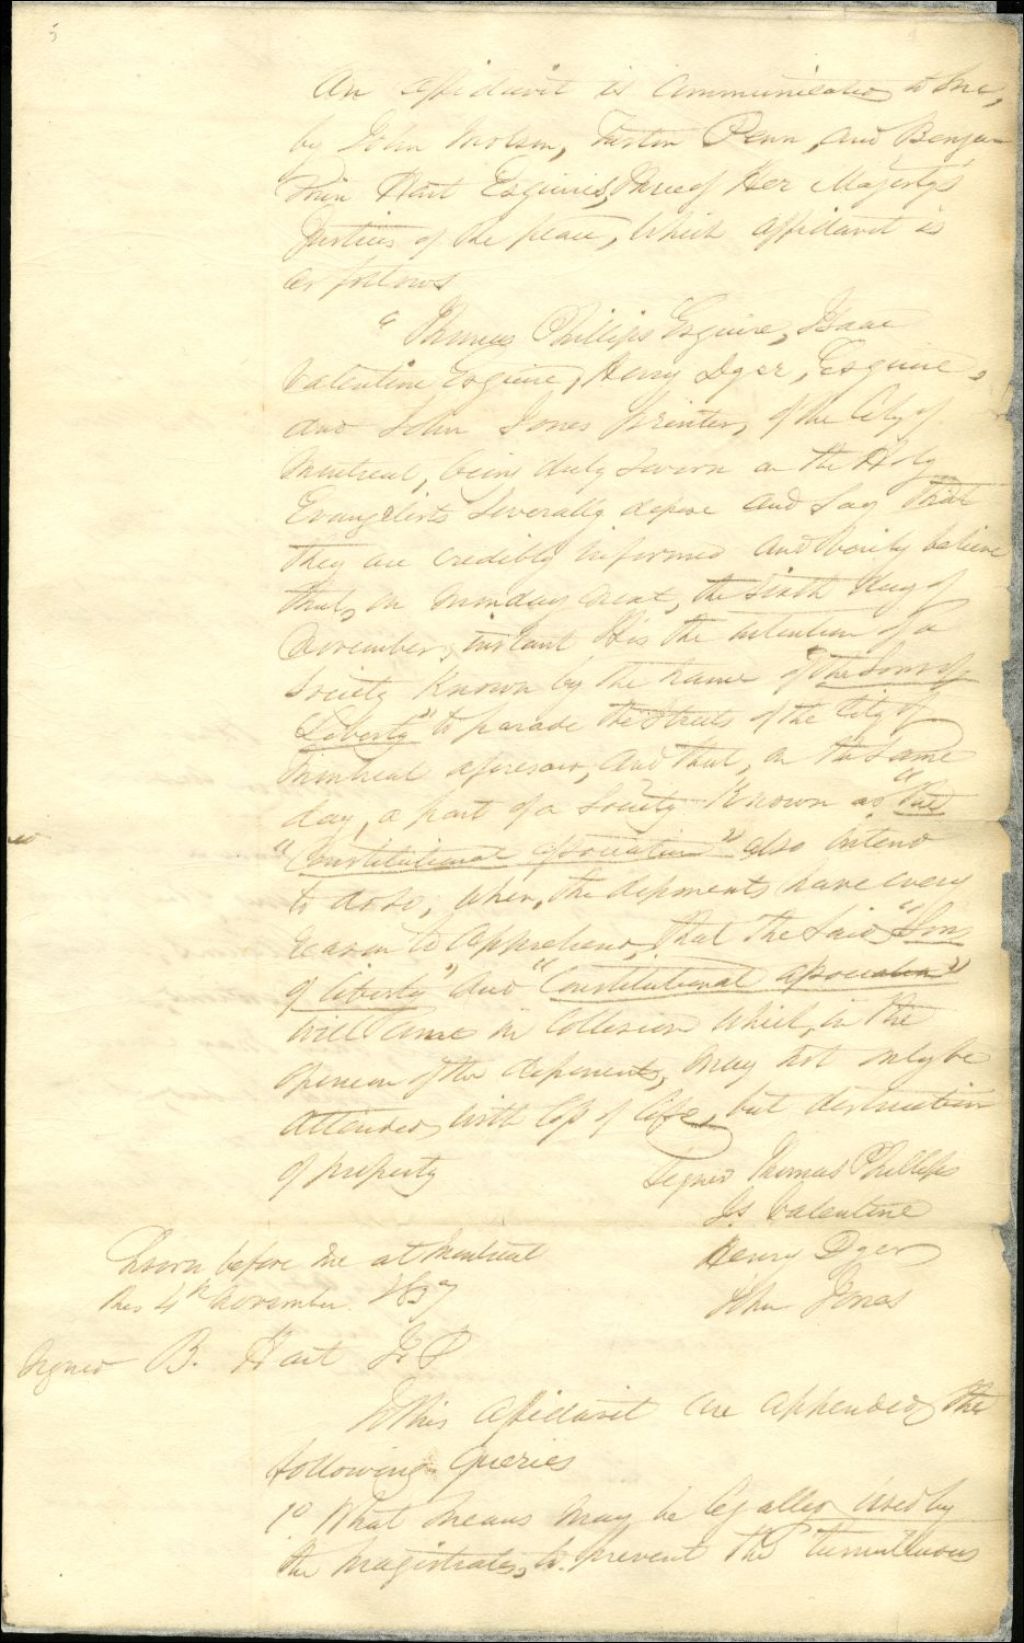 5
An affidavit is communicated to me,
by John Molson, Turton Penn, and Benja-
min Hart Esquires, Three of Her Majesty's
Justices of the peace, which affidavit is
as follows
" Thomas Phillips Esquire, Isaac
Valentine Esquire, Henry Dyer, Esquire,
and John Jones Printer, of the City of
Montreal, being duly sworn on the Holy
Evangelists severally depose and say that
they are credibly informed and verily believe
that, on Monday next, the sixth day of
November, instant it is the intention of a
Society known by the name of "the Sons of
Liberty" to parade the streets of the City of
Montreal aforesaid, and that, on the same
day, a part of a Society known as "the
"Constitutional association" also intend
to do so, when, the deponents have every
reason to apprehend, that the said "Sons
of liberty" and "Constitutional association"
will come in Collision which, in the
opinion of the deponents, may not only be
attended with loss of life, but destruction
of property
Signed Thomas Phillips
Is. Valentine
Henry Dyer
John Jones
Sworn before me at Montreal
this 4th November 1837
Signed B. Hart J. P
To this affidavit are appended the
following Queries
1o. What means may be legally used by
the Magistrates, to prevent the tumultuous